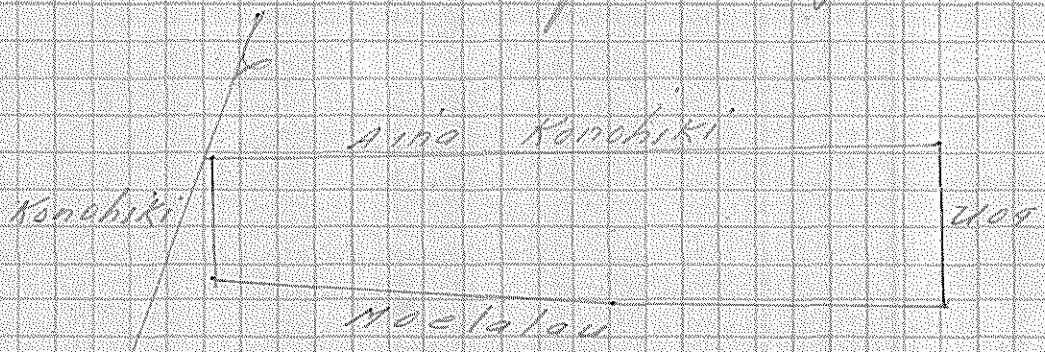 Aina Konohiki
Konohiki
Moelalau